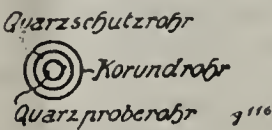 Quarzschutzrohr
Korundrohr
Quarzproberohr g 116